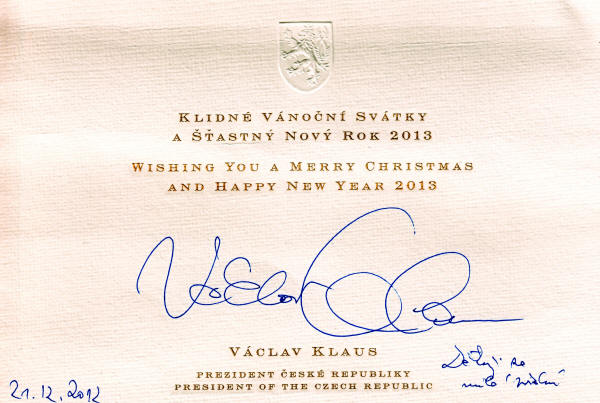 Klidné Vánoční Svátky
a Šťastný Nový Rok 2013
Wishing You a Merry Christmas
and Happy New Year 2013
Václav Klaus
Prezident České Republiky
President of the Czech Republic
Děkuji za
milé
21.12.2012